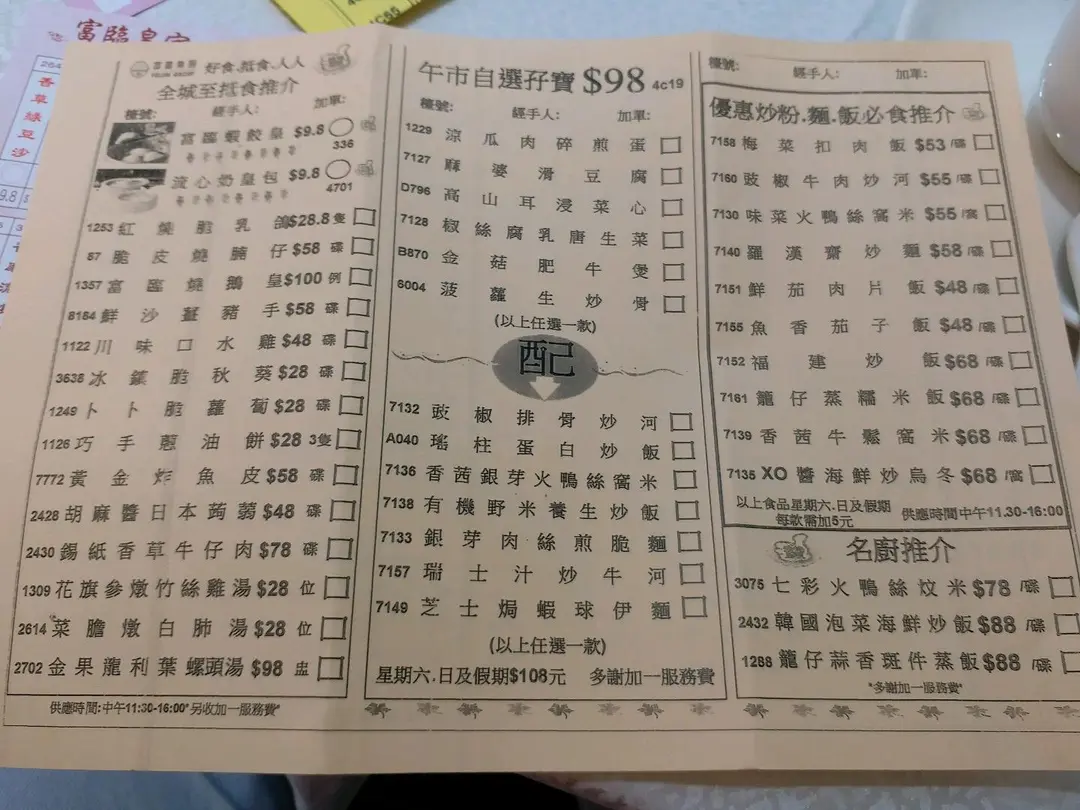 富臨皇宮
264
香草綠豆沙
9.8
富臨集團
FULUM GROUP
好食.抵食.人人
全城至抵食推介
檯號: 經手人: 加單:
富臨蝦餃皇 $9.8
336
流心奶皇包 $9.8
4701
1253 紅燒脆乳鴿 $28.8 隻
87 脆皮燒腩仔 $58 碟
1357 富臨燒鵝皇 $100 例
8184 鮮沙薑豬手 $58 碟
1122 川味口水雞 $48 碟
3636 冰鎮脆秋葵 $28 碟
1249 卜卜脆蘿蔔 $28 碟
1126 巧手蔥油餅 $28 3隻
7772 黃金炸魚皮 $58 碟
2428 胡麻醬日本蒟蒻 $48 碟
2430 錫紙香草牛仔肉 $78 碟
1309 花旗參燉竹絲雞湯 $28 位
2614 菜膽燉白肺湯 $28 位
2702 金果龍利葉螺頭湯 $98 盅
供應時間:中午11:30-16:00*另收加一服務費*
午市自選孖寶 $98 4c19
檯號: 經手人: 加單:
1229 涼瓜肉碎煎蛋
7127 麻婆滑豆腐
D796 高山耳浸菜心
7128 椒絲腐乳唐生菜
B870 金菇肥牛煲
6004 菠蘿生炒骨
(以上任選一款)
配
7132 豉椒排骨炒河
A040 瑤柱蛋白炒飯
7136 香茜銀芽火鴨絲窩米
7138 有機野米養生炒飯
7133 銀芽肉絲煎脆麵
7157 瑞士汁炒牛河
7149 芝士焗蝦球伊麵
(以上任選一款)
星期六.日及假期$108元 多謝加一服務費
檯號: 經手人: 加單:
優惠炒粉.麵.飯必食推介
7158 梅菜扣肉飯 $53 /碟
7160 豉椒牛肉炒河 $55 /碟
7130 味菜火鴨絲窩米 $55 /窩
7140 羅漢齋炒麵 $58 /碟
7151 鮮茄肉片飯 $48 /碟
7155 魚香茄子飯 $48 /碟
7152 福建炒飯 $68 /碟
7161 籠仔蒸糯米飯 $68 /碟
7139 香茜牛鬆窩米 $68 /碟
7135 XO醬海鮮炒烏冬 $68 /窩
以上食品星期六.日及假期
每款需加5元
供應時間中午11.30-16:00
名廚推介
3075 七彩火鴨絲炆米 $78 /碟
2432 韓國泡菜海鮮炒飯 $88 /碟
1288 籠仔蒜香斑件蒸飯 $88 /碟
*多謝加一服務費*